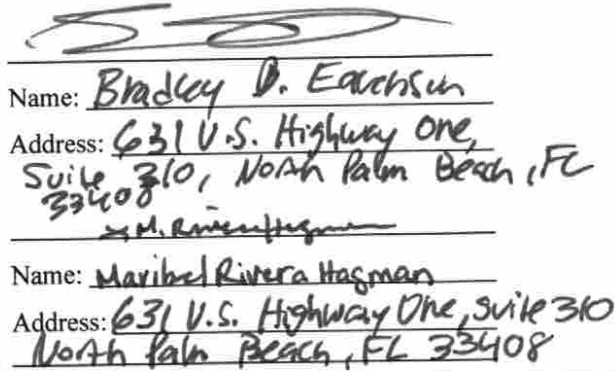 Name: Bradley D. Eavenson
Address: 631 U.S. Highway One,
Suite 310, North Palm Beach, FL
33408
M. Rivera Hagman
Name: Maribel Rivera Hagman
Address: 631 U.S. Highway One, Suite 310
North Palm Beach, FL 33408